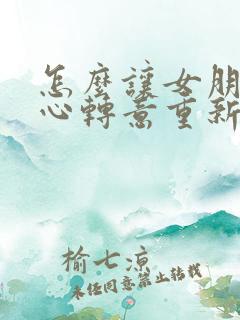 怎麼讓女朋
心轉意重新
榆七涼
未经同意禁止转载